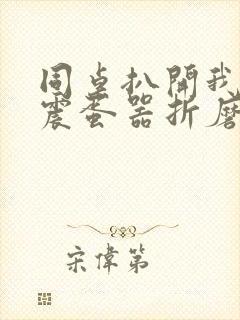 同桌扒開我
震蛋器折磨
宋偉第